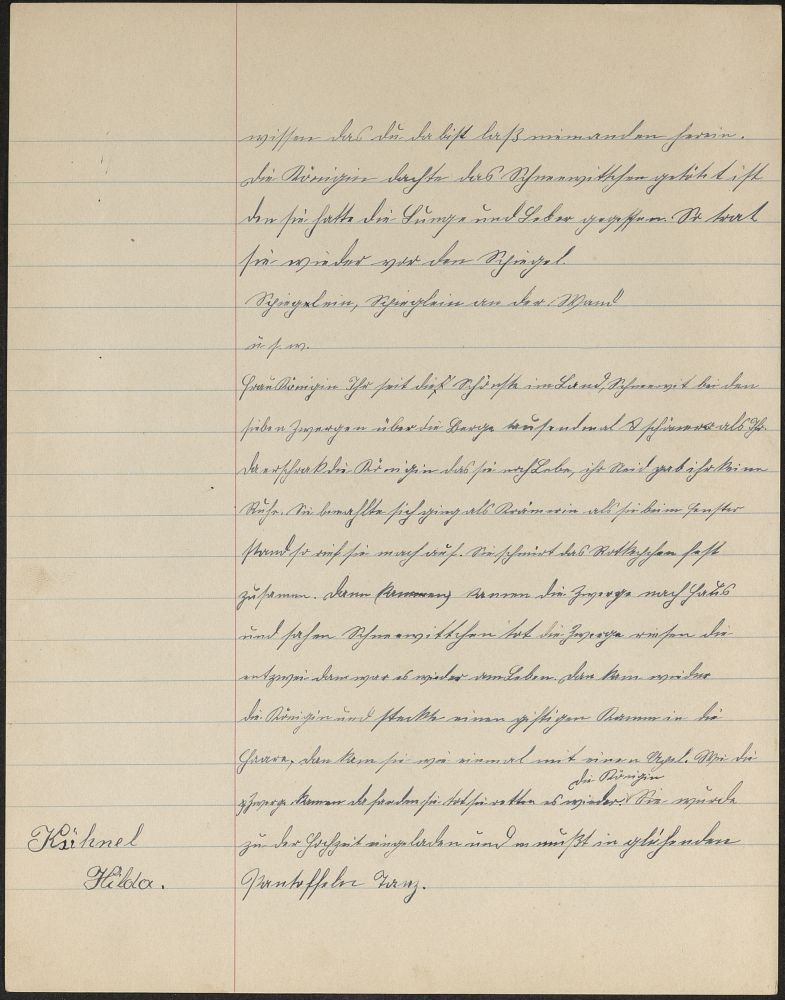 wissen das du da bist laß niemanden herein.
Die Königin dachte das Schneewittchen getötet ist
den sie hatte die Lunge und Leber gegessen. So trat
sie wieder vor den Spiegel.
Spiegelein, Spieglein an der Wand"
u. s. w.
Frau Königin Ihr seit die Schönste im Land, Schneewit bei den
sieben Zwergen über die Berge tausendmal schöner als Ihr.
Da erschrak die Königin das sie noch Lebe, ihr Neid gab ihr keine
Ruhe. Sie bemahlte sich ging als Krämerin als sie beim Fenster
stand so rief sie mach auf. Sie schnürt das Rotkepchen fest
zusamen. Dann kammen kamen die Zwerge nach Haus
und sahen Schneewittchen tot die Zwerge riesen die
entzwei dan war es wieder am Leben. Dan kam wieder
die Königin und steckte einen giftigen Kamm in die
Haare, dan kam sie wie einmal mit einen Apel. Wie die
Zwerge kamen da fanden sie tot sie retten es wieder. die Königin Sie wurde
zu der Hochzeit eingeladen und mußt in glühenden
Pantoffeln Tanz.
Kühnel
Hilda.